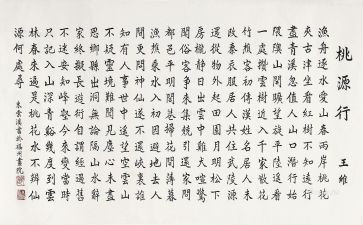 桃源行
王維
漁舟逐水愛山春兩岸桃花
夾古津坐看紅樹不知遠行
盡青溪忽值人山口潛行始
隈隩山開曠望旋平陸遙看
一處攢雲樹近入千家散花
竹樵客初傳漢姓名居人未
改秦衣服居人共住武陵源
還從物外起田園月明松下
房櫳靜日出雲中雞犬喧驚
聞俗客爭來集競引還家問
都邑平明閭巷掃花開薄暮
漁樵乘水入初因避地去人
間更問神仙遂不還峽裏誰
知有人事世中遙望空雲山
不疑靈境難聞見塵心未盡
思鄉縣出洞無論隔山水辭
家終擬長遊衍自謂經過舊
不迷安知峰壑今來變當時
只記入山深青谿幾度到雲
林春來遍是桃花水不辨仙
源何處尋